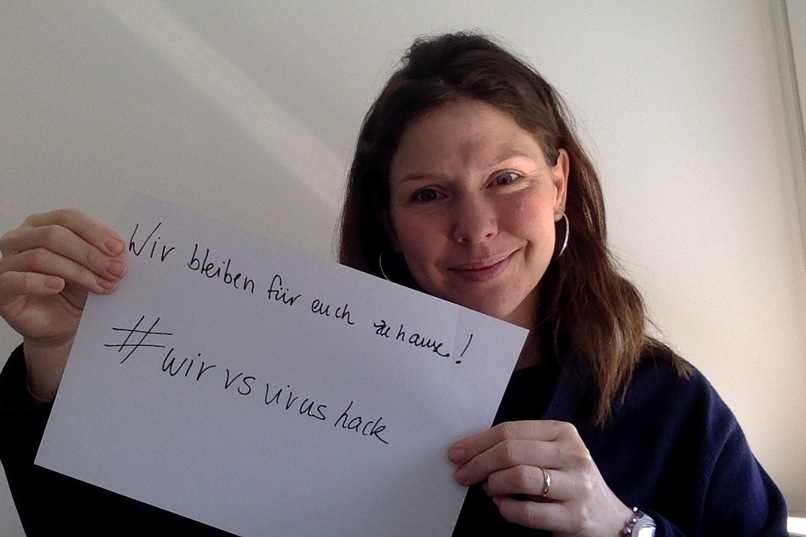 Wir bleiben für euch zuhause!
#wirvsvirushack